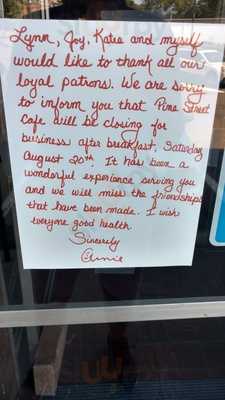 Lynn, Joy, Katie and myself
would like to thank all our
loyal patrons. We are sorry
to inform you that Pine Street
Cafe will be closing for
business after breakfast, Saturday
August 20th. It has been a
wonderful experience serving you
and we will miss the friendships
that have been made. I wish
everyone good health.
Sincerely
Annie